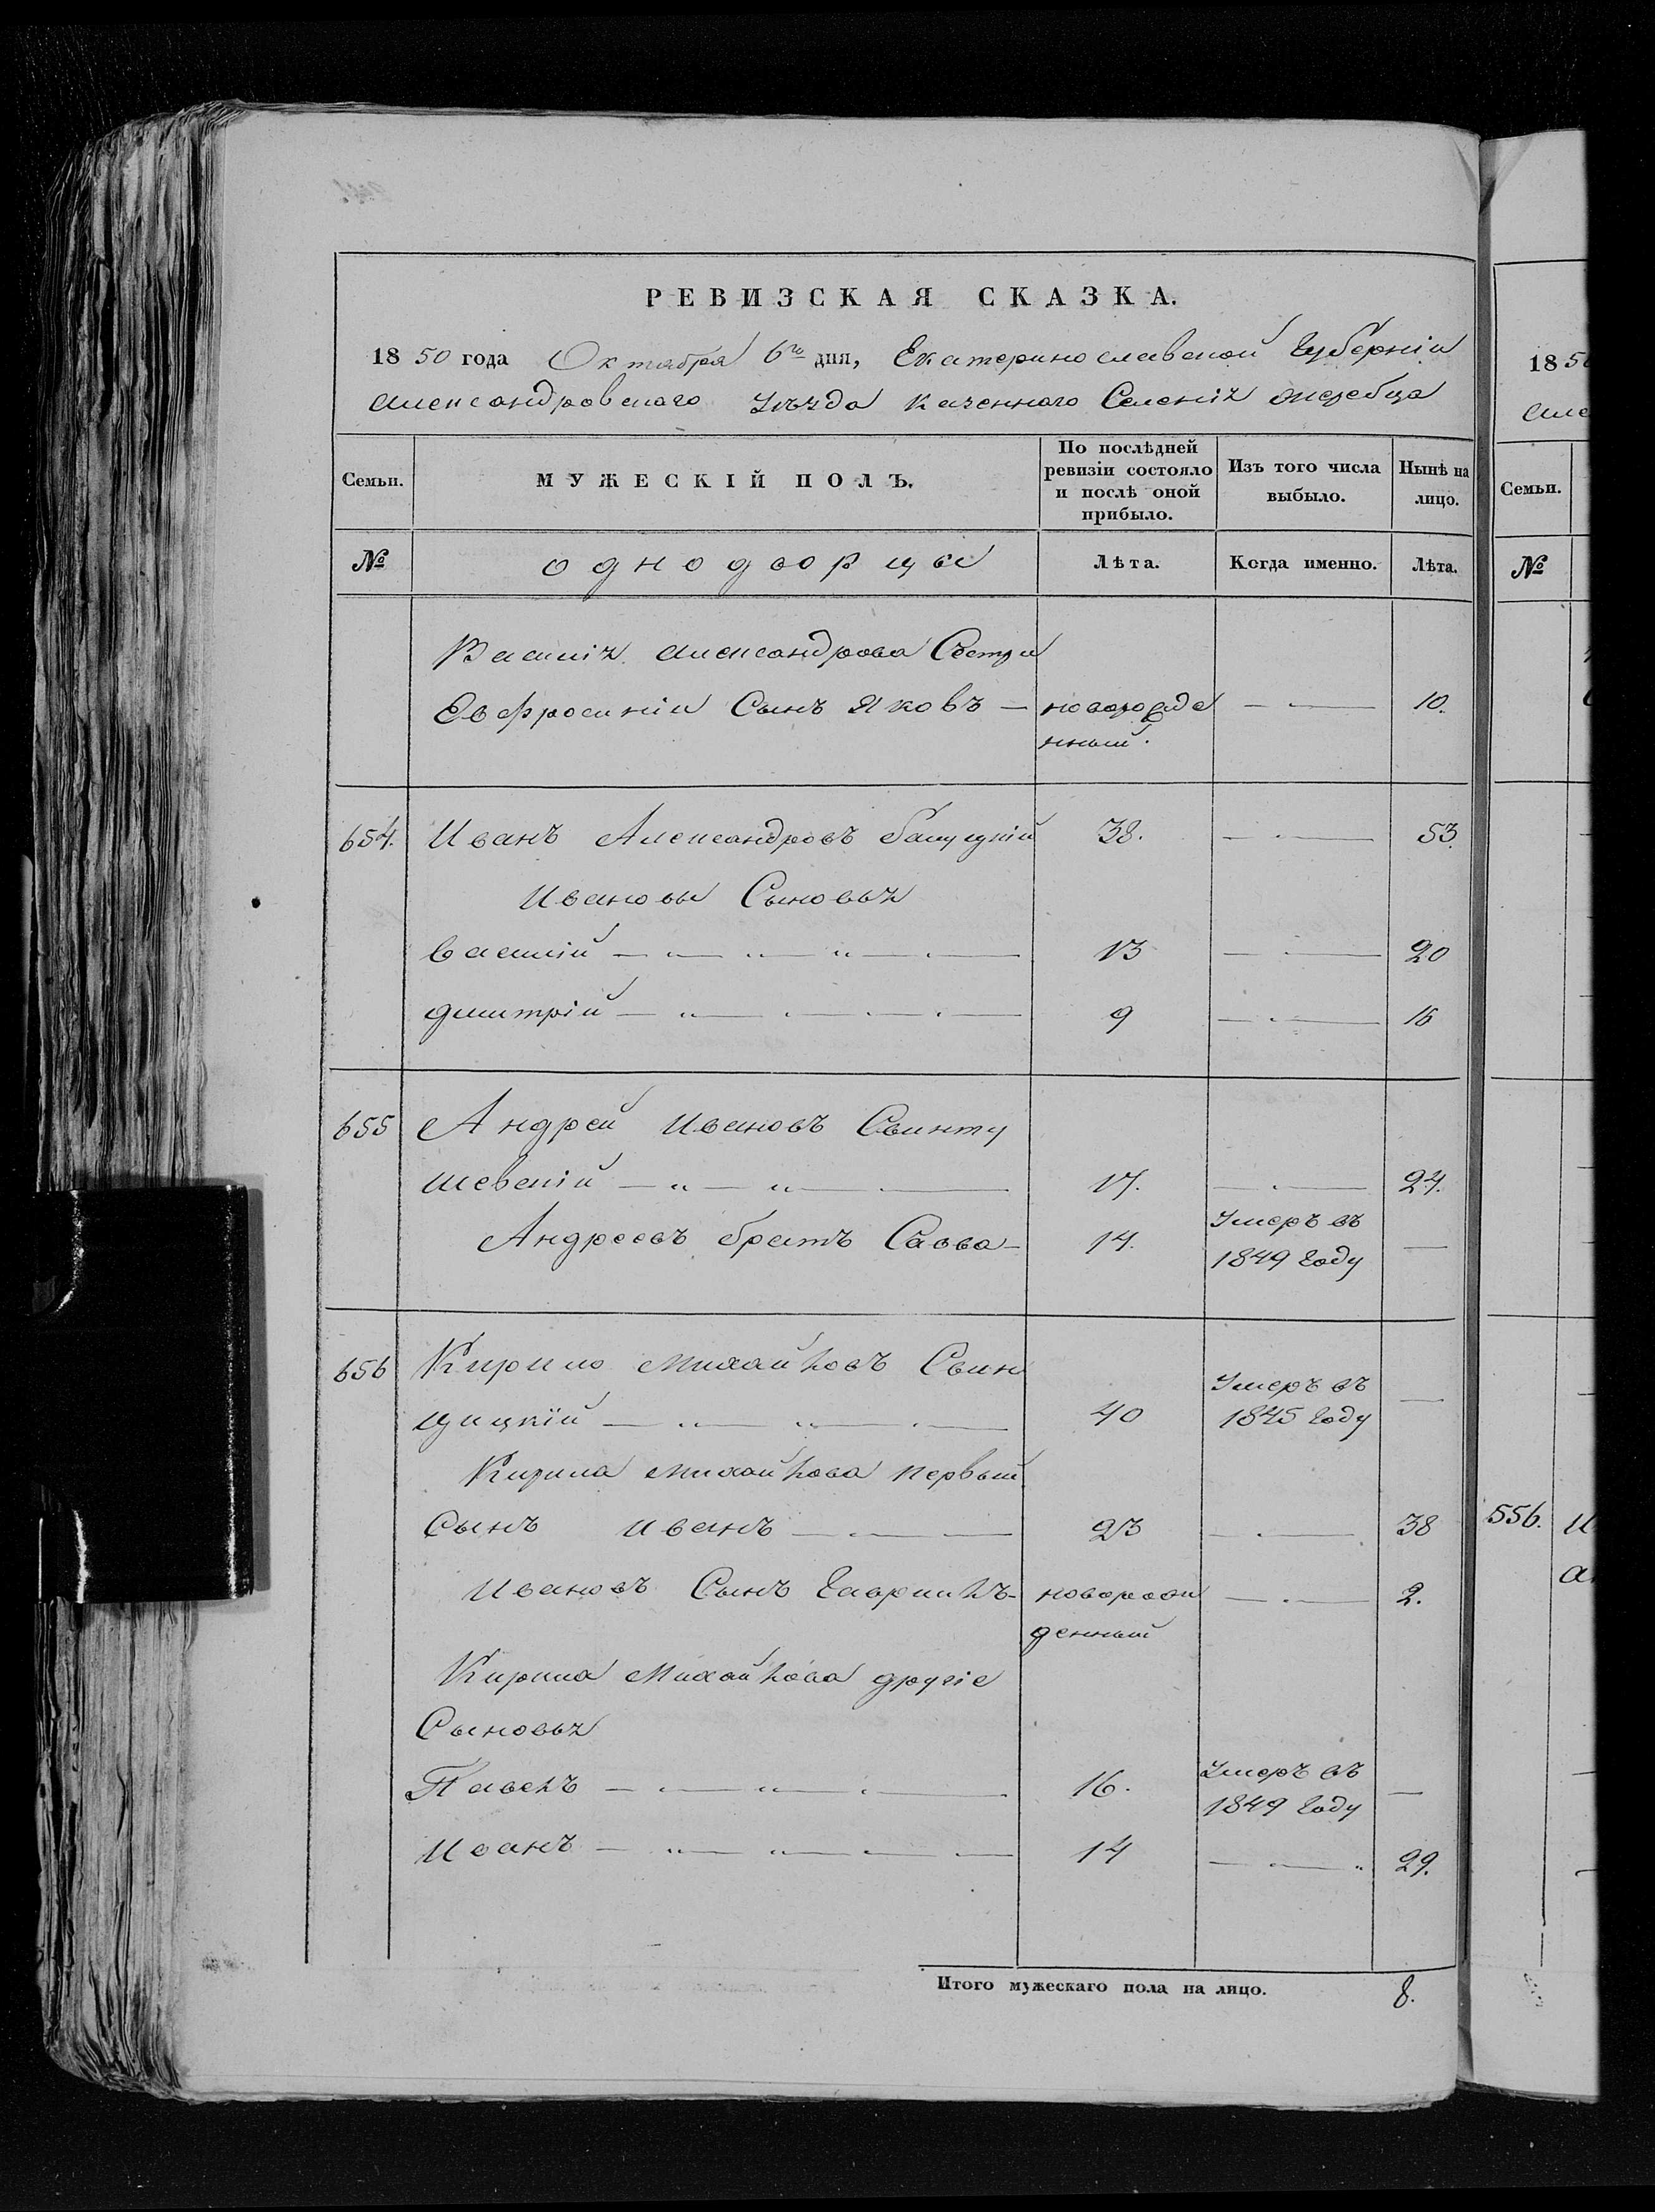 РЕВИЗСКАЯ СКАЗКА.
1850 года Октября 6го дня, Екатеринославской Губерніи
Александровскаго Уѣзда Казеннаго Селенія Жеребца
Семьи.
МУЖЕСКІЙ ПОЛЪ.
По послѣдней ревизіи состояло и послѣ оной прибыло.
Изъ того числа выбыло.
Нынѣ на лицо.
№ однодворцы Лѣта. Когда именно. Лѣта.
Василія Александрова Сестры
Евфросиніи Сынъ Яковъ — новорожде — 10.
нный.
654. Иванъ Александровъ 38. — 53.
Ивановы Сыновья
Василій — 13 — 20
Дмитрій — 9 — 16
655 Андрей Ивановъ Свинту
шевскій — 17. — 24.
Андреевъ братъ Савва — 14. Умеръ въ —
1849 Году
656 Кирило Михайловъ Свин
цицкій — 40 Умеръ въ —
1845 Году
Кирила Михайлова первый
Сынъ Иванъ — 23 — 38
Ивановъ Сынъ Гаврилъ — новорож — 2.
денный
Кирила Михайлова другіе
Сыновья
Павелъ — 16. Умеръ въ —
1849 Году
Иванъ — 14 — 29.
Итого мужескаго пола на лицо. 8.
1850
Але
Семьи.
№
556. И